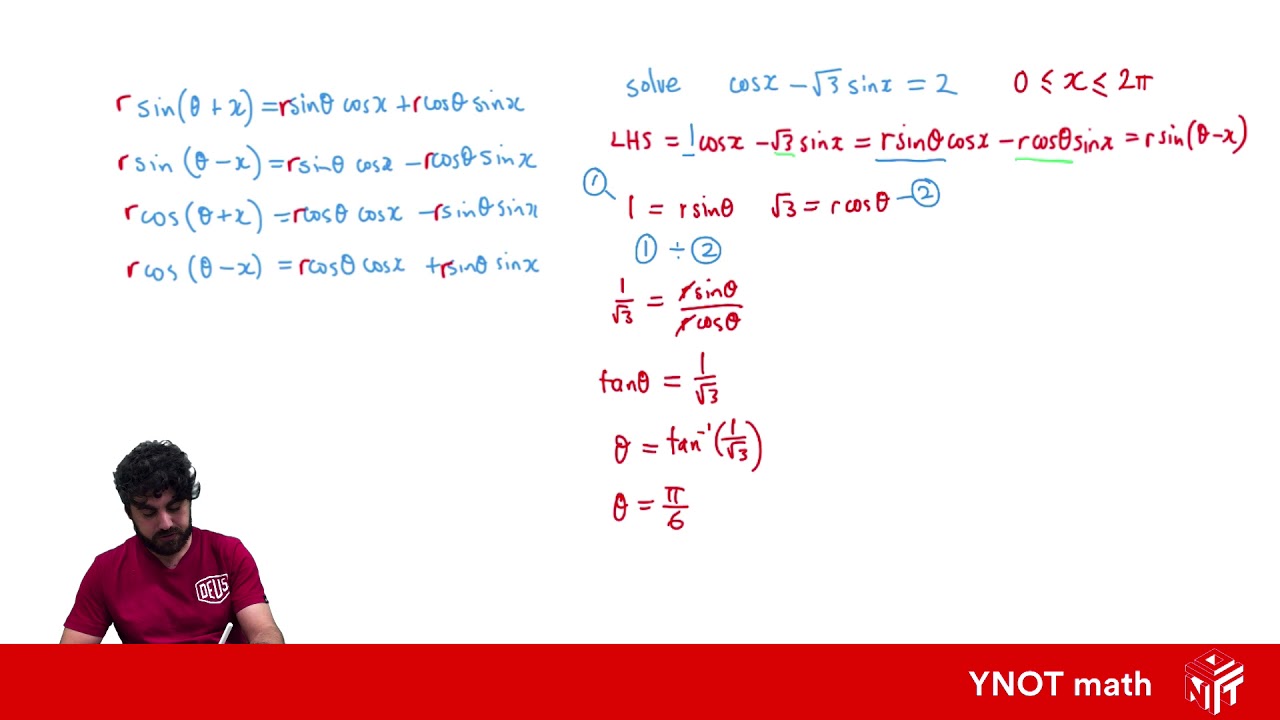 r sin(θ + x) = r sinθ cosx + r cosθ sinx
r sin (θ − x) = r sinθ cosx − r cosθ sinx
r cos (θ + x) = r cosθ cosx − r sinθ sinx
r cos (θ − x) = r cosθ cosx + r sinθ sinx
solve cosx − √3 sinx = 2 0 ≤ x ≤ 2π
LHS = 1cosx − √3 sinx = r sinθ cosx − r cosθ sinx = r sin(θ−x)
① 1 = r sinθ √3 = r cosθ — ②
① ÷ ②
1/√3 = r sinθ / r cosθ
tanθ = 1/√3
θ = tan⁻¹(1/√3)
θ = π/6
DEUS
YNOT math
YNOT